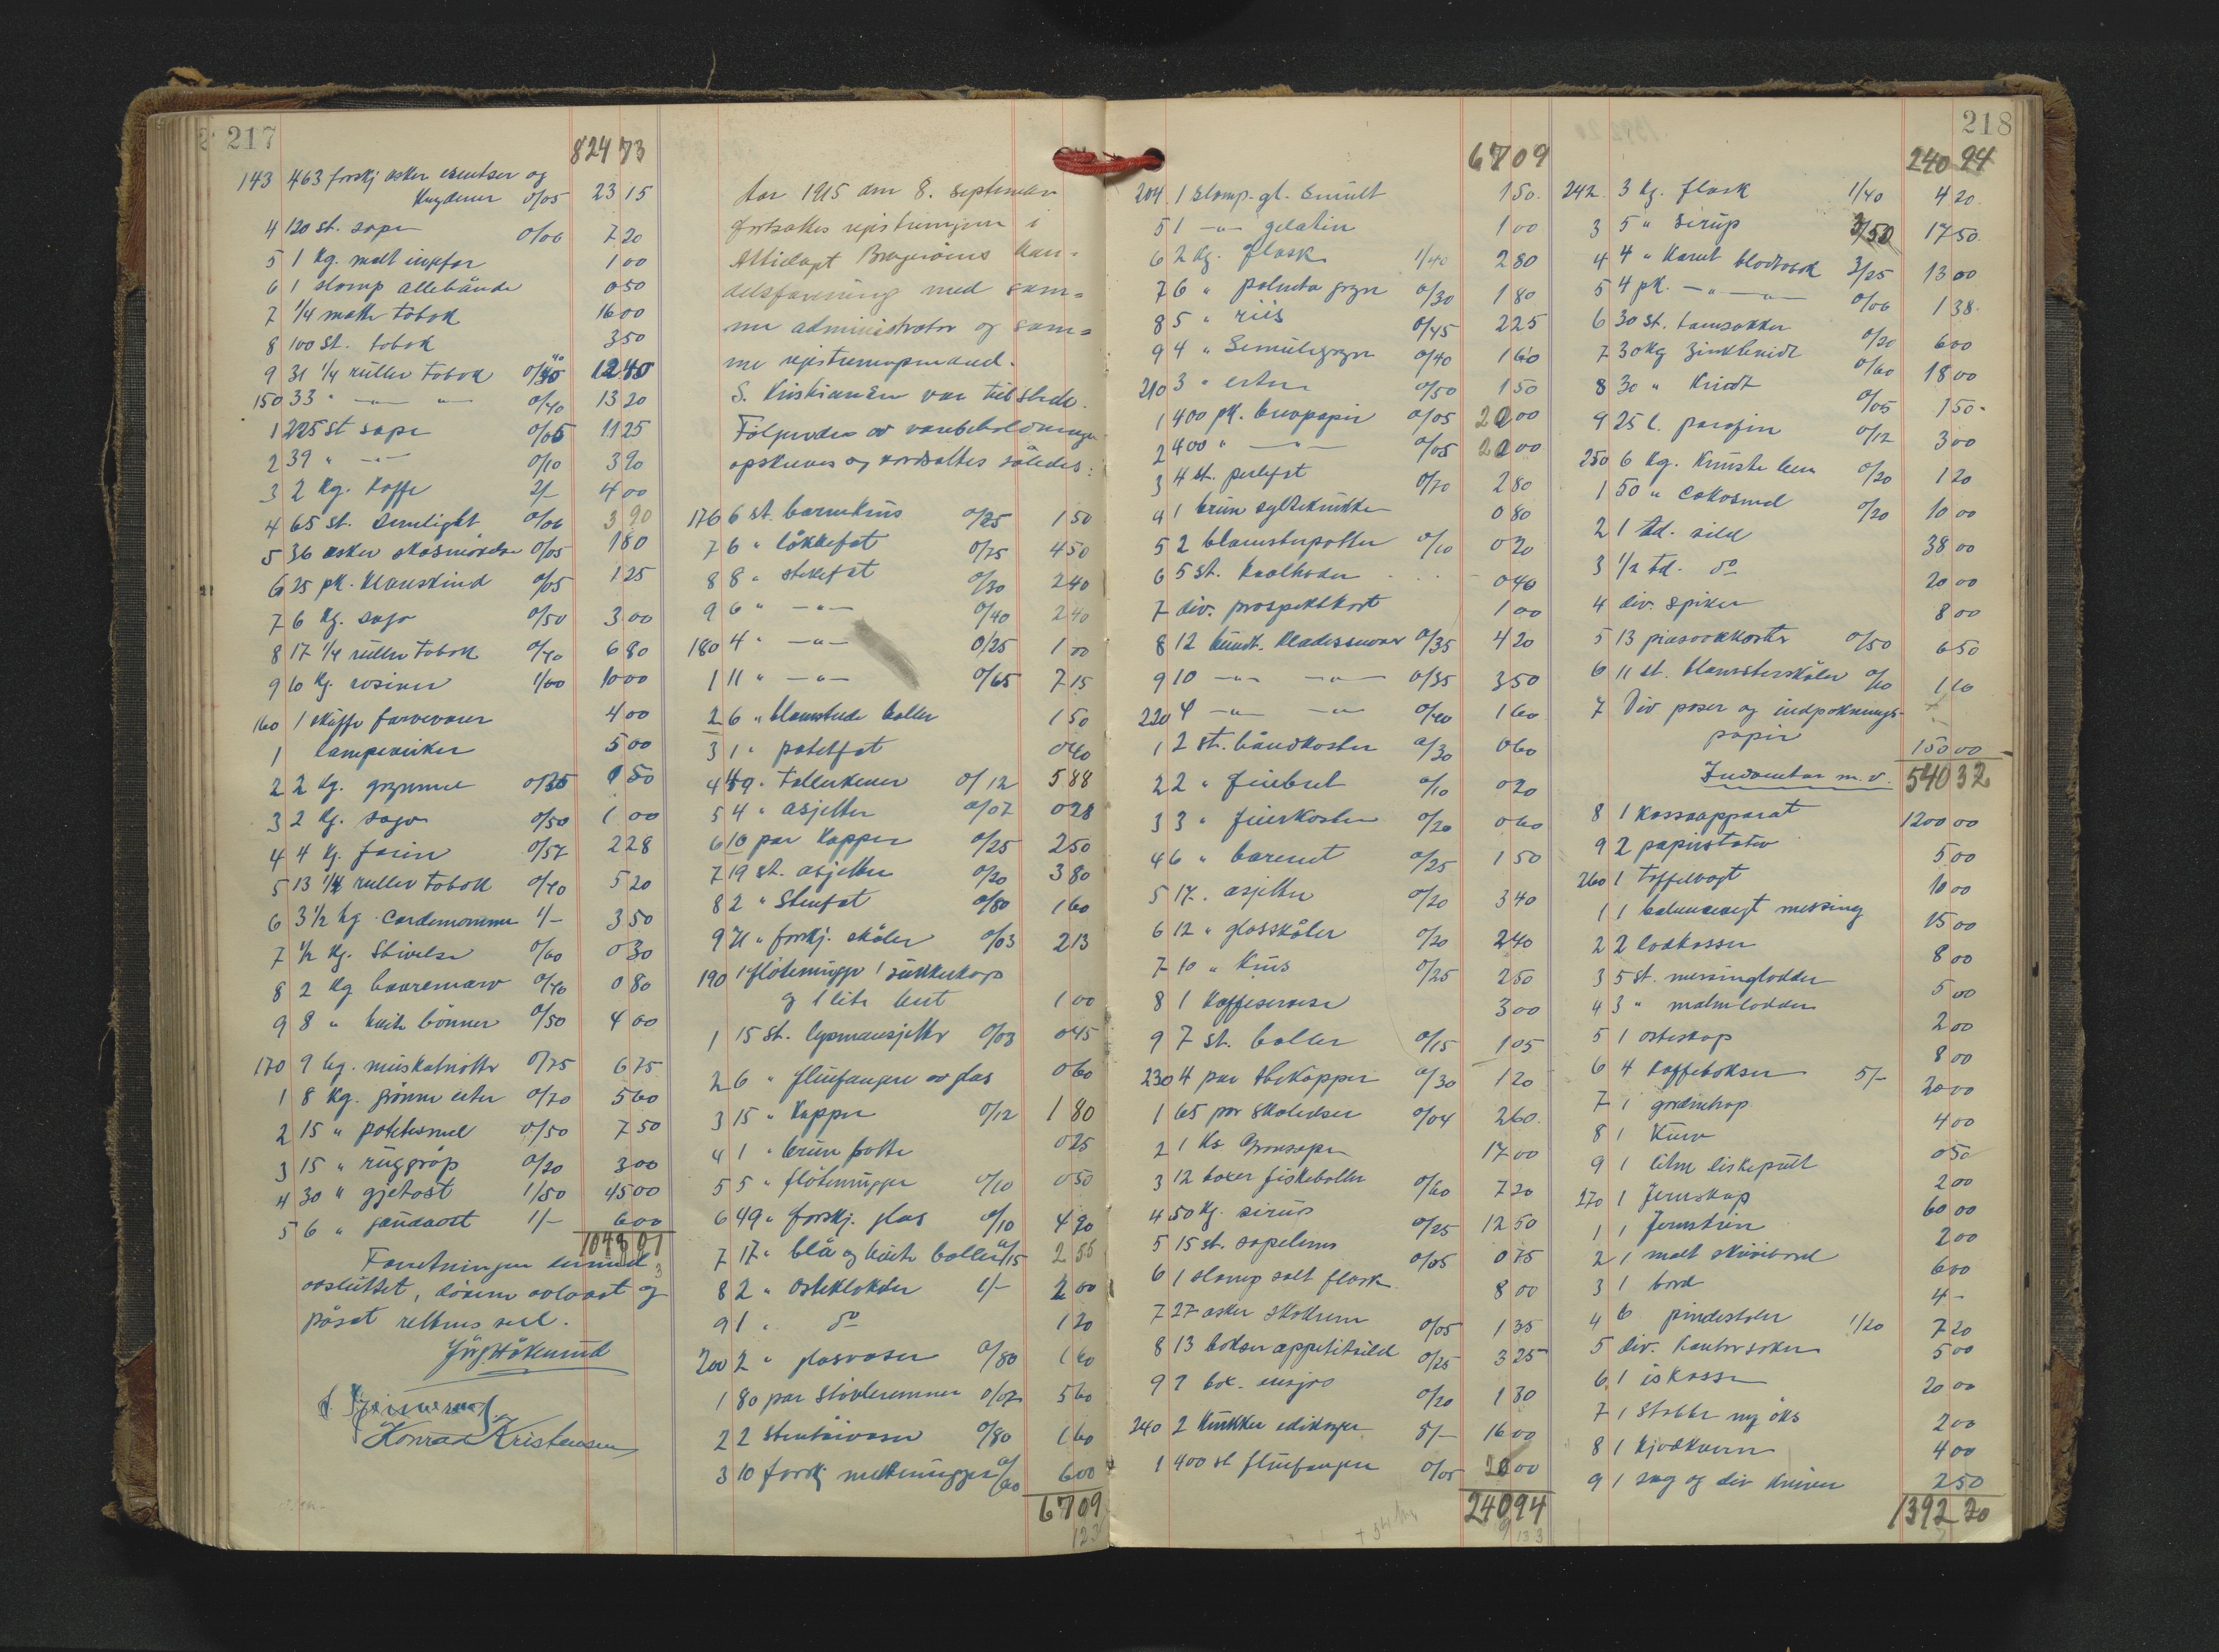 217
824 73
143 463 forskj æsker essentser og
Krydderier 0/05 23 15
4 120 st. sæpe 0/06 7 20
5 1 kg. malt ingefær 1 00
6 1 slomp allehånde 0 50
7 1/4 matte tobak 16 00
8 100 st. tobak 3 50
9 31 1/4 ruller tobak 0/40 12 40
150 33 " — " — " 0/40 13 20
1 225 st sæpe 0/05 11 25
2 39 " — " — 0/10 3 90
3 2 kg. kaffe 2/- 4 00
4 65 st. sunlight 0/06 3 90
5 36 æsker skosmörelse 0/05 1 80
6 25 pk. Klareskind 0/05 1 25
7 6 kg. sago 0/50 3 00
8 17 1/4 ruller tobak 0/40 6 80
9 10 kg. rosiner 1/00 10 00
160 1 skuffe farvevarer 4 00
1 lampeveiker 5 00
2 2 kg. grynmel 0/25 0 50
3 2 kg. sago 0/50 1 00
4 4 kg. farin 0/57 2 28
5 13 1/4 ruller tobak 0/40 5 20
6 3 1/2 hg. Cardemomme 1/- 3 50
7 1/2 kg. Stivelse 0/60 0 30
8 2 kg 0/40 0 80
9 8 " hvite bönner 0/50 4 00
170 9 hg. muskatnötter 0/75 6 75
1 8 kg. grönne erter 0/70 5 60
2 15 " potetesmel 0/50 7 50
3 15 " ruggröp 0/20 3 00
4 30 " gjetost 1/50 45 00
5 6 " goudaost 1/- 6 00
1048 01
Forretningen hermed
avsluttet, dörene avlaast og
påsat rettens seil.
Konrad Kristensen
Aar 1915 den 8. september
fortsattes registreringen i
Handelsforening med samme
administrator og samme
registreringsmænd.
S. Kristiansen var tilstede.
Fölgende av varebeholdningen
opskreves og værdsattes således:
176 6 st. barnekrus 0/25 1 50
7 6 " lökkefat 0/75 4 50
8 8 " stekefat 0/30 2 40
9 6 " — " — 0/40 2 40
180 4 " — " — 0/25 1 00
1 11 " — " — 0/65 7 15
2 6 " blomstrede boller 1 50
3 1 " potetfat 0 40
4 49 " tallerkener 0/12 5 88
5 4 " asjetter 0/07 0 28
6 10 par kopper 0/25 2 50
7 19 st. asjetter 0/20 3 80
8 2 " Stenfat 0/80 1 60
9 71 " forskj. skåler 0/03 2 13
190 1 flötemugge 1 sukkerkop
og 1 lite 1 00
1 15 st. lysmansjetter 0/03 0 45
2 6 " fluefangere av glas 0 60
3 15 " Kopper 0/12 1 80
4 1 " brun potte 0 25
5 5 " flötemugger 0/10 0 50
6 49 " forskj. glas 0/10 4 90
7 17 " blå og hvite boller 0/15 2 55
8 2 " Osteklokker 1/- 2 00
9 1 " do 1 20
200 2 " glasvaser 0/80 1 60
1 80 par Stövleremmer 0/07 5 60
2 2 0/80 1 60
3 10 forskj melkemugger 0/60 6 00
67 09
218
67 09
204 1 slomp. gl. Semult 1 50
5 1 — " — gelatin 1 00
6 2 kg. flæsk 1/40 2 80
7 6 " gryn 0/30 1 80
8 5 " riis 0/45 2 25
9 4 " Semulegryn 0/40 1 60
210 3 " erter 0/50 1 50
1 400 pk. brevpapir 0/05 20 00
2 400 " — " — 0/05 20 00
3 4 st. 0/70 2 80
4 1 brun syltekrukke 0 80
5 2 blomsterpotter 0/10 0 20
6 5 st. Kaalhoder 0 40
7 div. prospektkort 1 00
8 12 bundt. Kladessnorer 0/35 4 20
9 10 — " — — " — 0/35 3 50
220 4 — " — — " — 0/40 1 60
1 2 st. håndkoster 0/30 0 60
2 2 " feiebret 0/10 0 20
3 3 " feierkoster 0/20 0 60
4 6 " 0/25 1 50
5 17 " asjetter 0/20 3 40
6 12 " glasskåler 0/20 2 40
7 10 " Krus 0/25 2 50
8 1 Kaffeservise 3 00
9 7 st. boller 0/15 1 05
230 4 par thekopper 0/30 1 20
1 65 par Skolisser 0/04 2 60
2 1 ks Grönsæpe 17 00
3 12 boxer fiskeboller 0/60 7 20
4 50 kg. sirup 0/25 12 50
5 15 st. 0/05 0 75
6 1 slomp salt flæsk 8 00
7 27 æsker Skokrem 0/05 1 35
8 13 bokser appetitsild 0/25 3 25
9 box. ansjos 0/20 1 30
240 2 krukker edikspr 5/- 16 00
1 400 st fluefanger 0/05 20 00
240 94
240 94
242 3 kg. flæsk 1/40 4 20
3 5 " Sirup 3/50 17 50
4 4 " Karvet bladtobak 3/25 13 00
5 4 pk. — " — — " — 0/06 1 38
6 30 st. tomsækker 0/20 6 00
7 30 kg Zinkhvidt 0/60 18 00
8 30 " Kridt 0/05 1 50
9 25 l. parafin 0/12 3 00
250 6 kg. 0/20 1 20
1 50 " Cokosmel 0/20 10 00
2 1 td. sild 38 00
3 1/2 td. do 20 00
4 div. spiker 8 00
5 13 piasavakoster 0/50 6 50
6 11 st. blomsterskåler 0/10 1 10
7 Div poser og indpakningspapir
150 00
540 32
Inventar m.v.
8 1 Kassaapparat 1200 00
9 2 papirstativ 5 00
260 1 taffelvægt 10 00
1 1 balancevægt messing 15 00
2 2 lodkasser 8 00
3 5 st. messinglodder 5 00
4 3 " malmlodder 2 00
5 1 osteskap 8 00
6 4 Kaffebokser 5/- 20 00
7 1 gardintrap 4 00
8 1 Kurv 0 50
9 1 liten diskepult 2 00
270 1 Jernskap 60 00
1 1 2 00
2 1 malt skrivebord 6 00
3 1 bord 4 -
4 6 pindestoler 1/20 7 20
5 div. 5 00
6 1 iskasse 20 00
7 1 Stabbe og öks 2 00
8 1 kjödkvern 4 00
9 1 sag og div kniver 2 50
1392 20